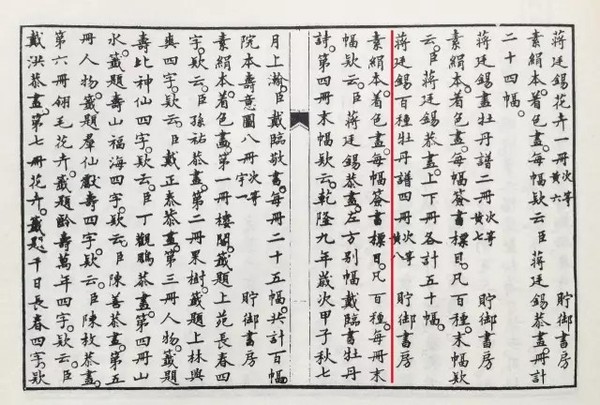 蒋廷錫花卉一冊次等黄六　貯御書房
素絹本着色畫每幅欵云臣蒋廷錫恭畫冊計
二十四幅
蒋廷錫畫牡丹譜二冊次等黄七　貯御書房
素絹本着色畫每幅簽書標目凡百種末幅欵
云臣蒋廷錫恭畫上下冊各計五十幅
蒋廷錫百種牡丹譜四冊次等黄八　貯御書房
素絹本着色畫每幅簽書標目凡百種每冊末
幅欵云臣蒋廷錫恭畫左方别幅戴臨書牡丹
詩第四冊末幅欵云乾隆九年歲次甲子秋七
月上瀚臣戴臨敬書每冊二十五幅共計百幅
院本壽意圖八冊次等宇一　貯御書房
素絹本着色畫第一冊樓閣籤題上苑長春四
字欵云臣孫祜恭畫第二冊果樹籤題上林與
與四字欵云臣戴正泰恭畫第三冊人物籤題
壽比神仙四字欵云臣丁觀鵬恭畫第四冊山
水籤題壽山福海四字欵云臣陳善恭畫第五
冊人物籤題羣仙獻壽四字欵云臣陳枚恭畫
第六冊翎毛花卉籤題齡壽萬年四字欵云臣
戴洪恭畫第七冊花卉籤題千日長春四字欵